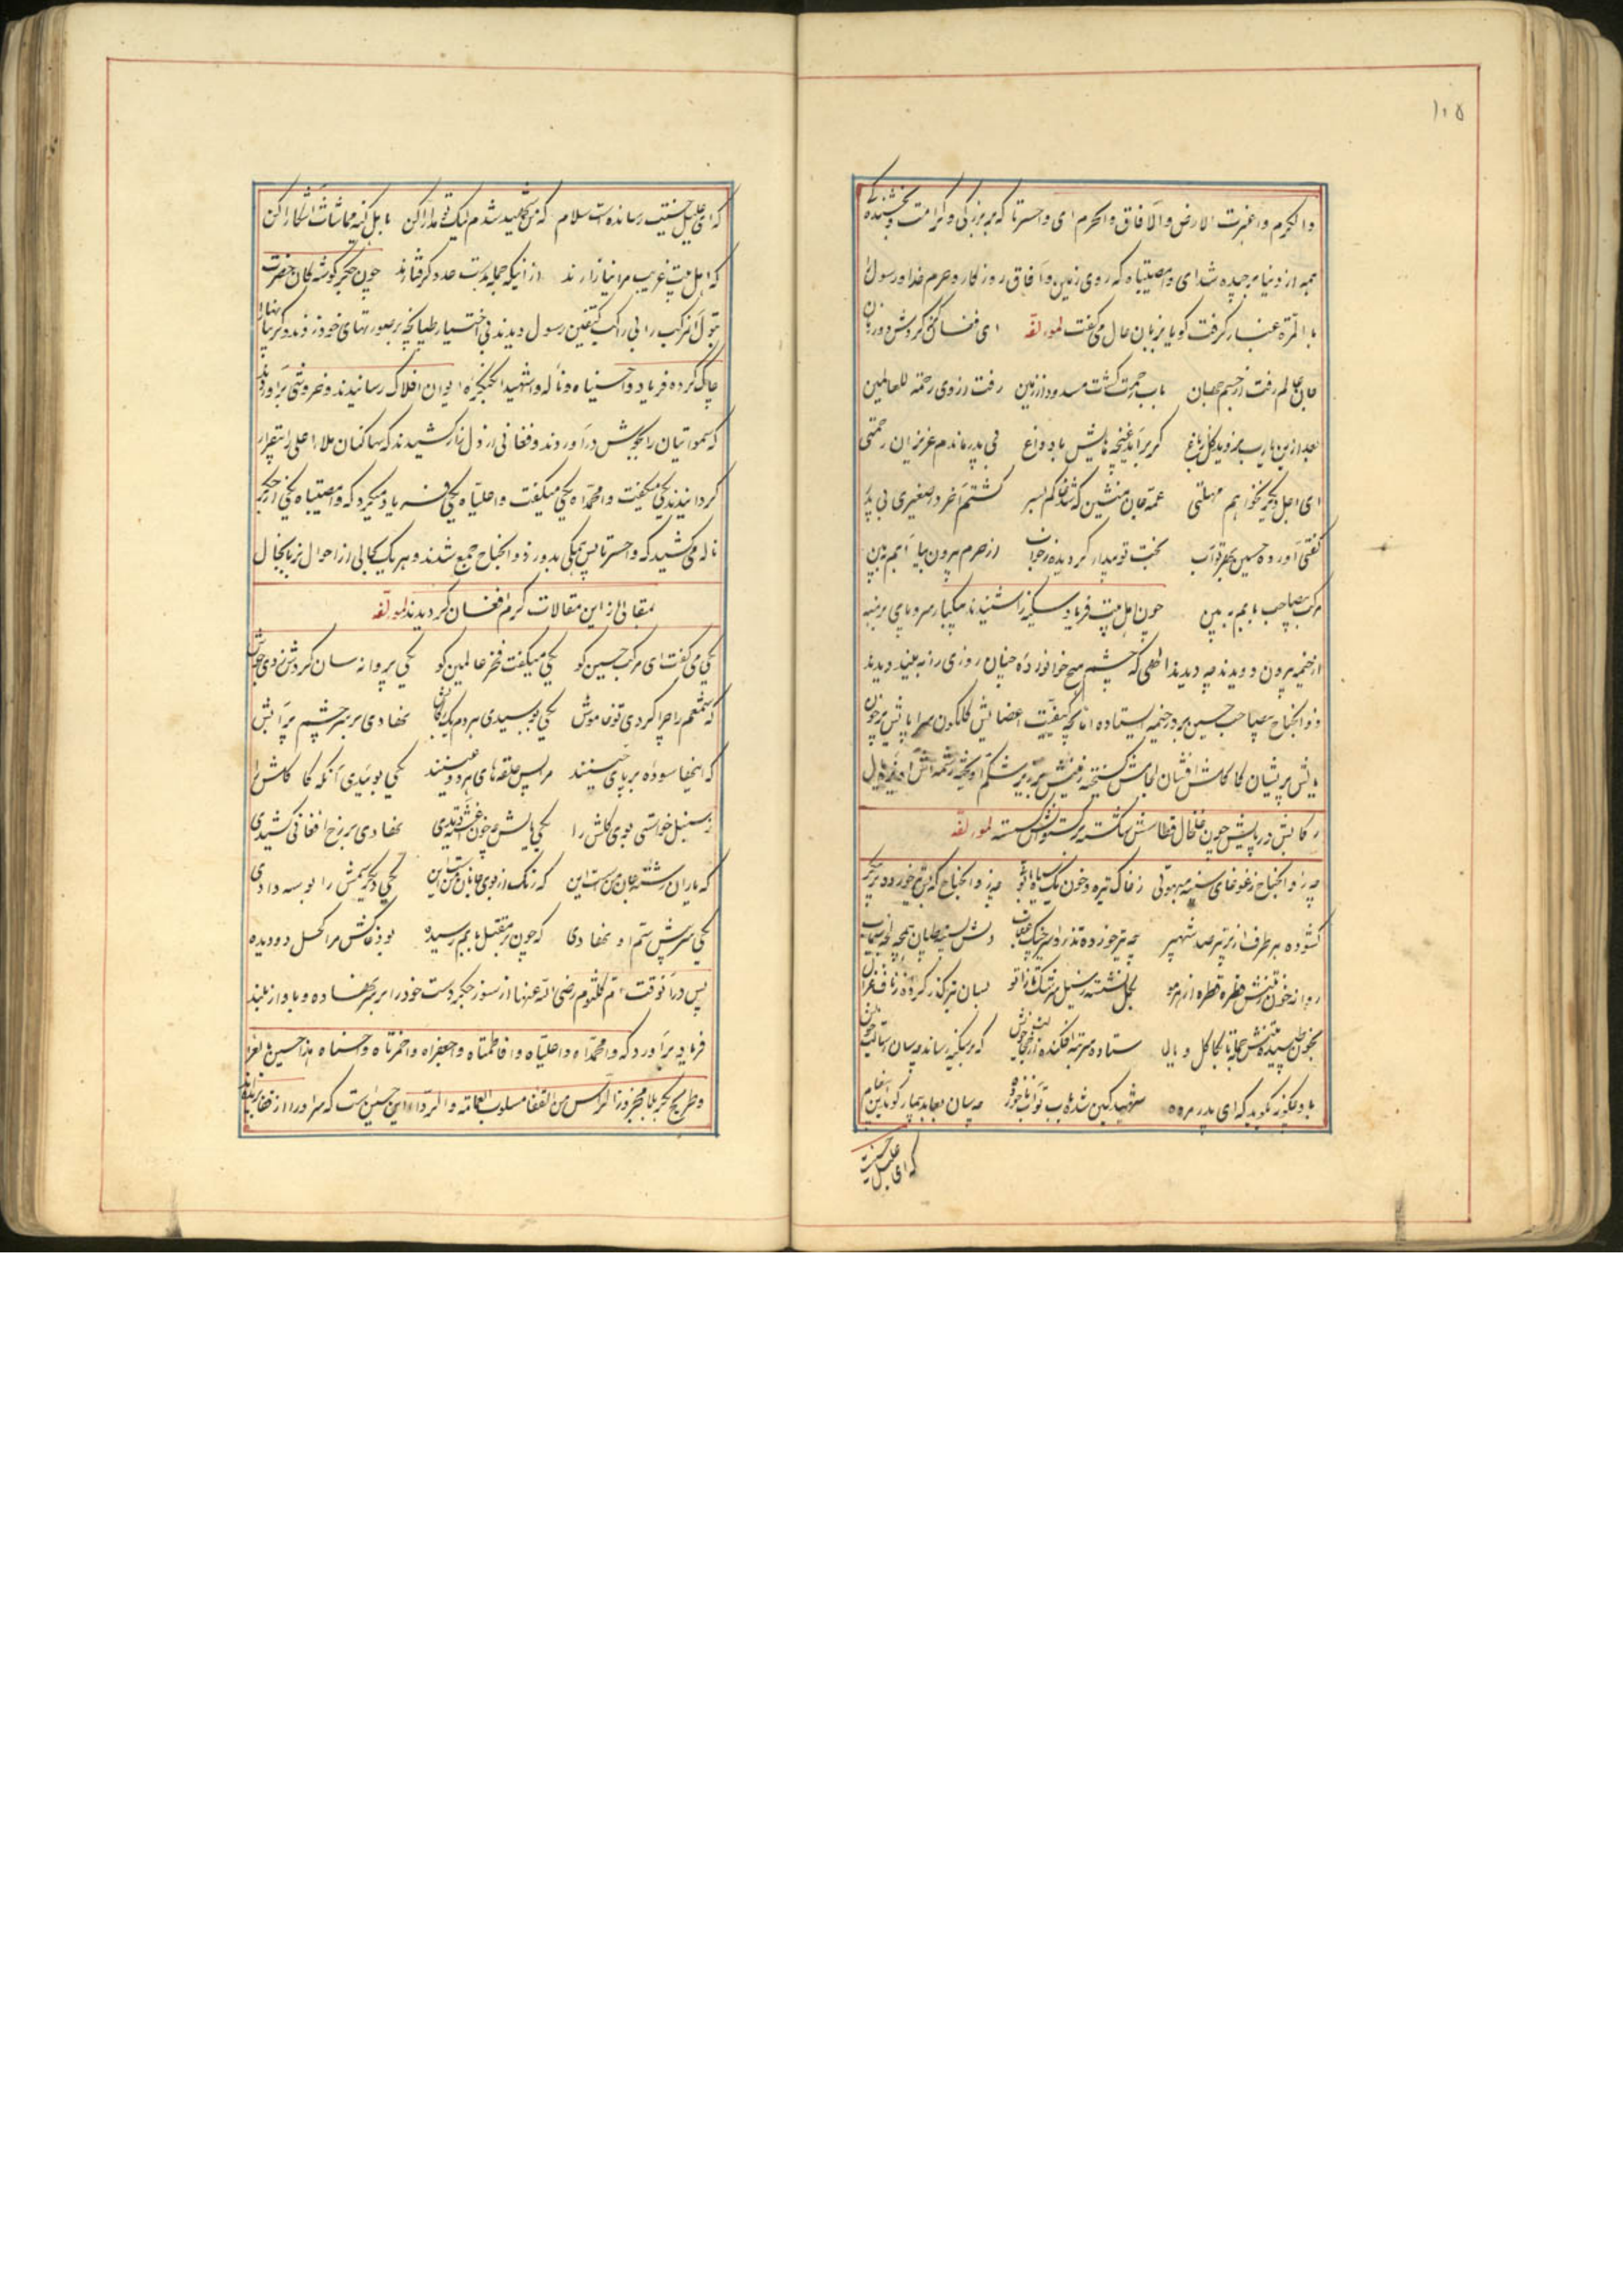 ۱۰۵
والکرم واغبرت الارض والآفاق والحرم ای واحسرتا که بزرگی و کرامت و بخشندگی
همه از دنیا برچیده شد ای وامصیبتاه که روی زمین و آفاق روزکار و حرم خدا و رسول
بالمرّه غبار کرفت کویا بزبان حال می گفت لمؤلفه ای فغان کز کردش دور زمان
جان عالم رفت از جسم جهان باب رحمت گشت مسدود از زمین رفت از وی رحمة للعالمین
بعد ازین یارب نروید کل بباغ کر برآید غنچه مانیش با دو داغ بی پدر ماندم عزیزان رحمتی
ای اجل دیکر نخواهم مهلتی عمه جان منشین که شد خاکم بسر کشتم آخر در صغیری بی پدر
گفتی آورده حسین بهر تو آب بخت تو بیدار کردیده ز خواب از حرم بیرون بیا بابم ببین
مرکب بیصاحب بابم ببین چون اهل بیت فریاد سکینه را شنیدند یکبار سر و پای برهنه
از خیمه بیرون دویدند چه دیدند الهی که چشم هیچ خواننده چنان روزی را نه بیند دیدند
ذوالجناح بیصاحب حسین بر در خیمه ایستاده اما بچه کیفیت اعضایش گلگون سراپایش پرخون
یالش پریشان کاکلش افشان لجامش گسیخته زینش بزیر شکم آویخته
رکابش در پایش چون خلخال قطاسش شکسته برکستوانش کسسته لمؤلفه
چه ذوالجناح ز غوغای زخاک تیره و خون چه ذوالجناح که تیر خورده بر پیکر
کشوده هر طرف از پر تیر صد شهپر چه تیر خورده تذرو اسیر چنک عقاب دلش بسینه طپان همچو سیماب
روانه خون ز تنش قطره قطره از هر مو بکل نشسته ز سیل سرشک تا زانو بسان
بخون طپیده تنش جمله تا بکاکل و یال ستاده سر بته افکنده از خجالت خویش که بر سکینه رساند چسان رسالت خویش
بار دیکر نکوید که ای پدر مرده شهید کین شده باب تو آب ناخورده چسان بعابد بیمار کوید این پیغام
که ای علیل حسینت
که ای علیل حسینت رسانده است سلام که من شهید شدم لیک تو مدارا کن باهل کینه مماشات آشکارا کن
که اهل بیت غریب مرا نیازارند از آنکه جمله بدست عدو کرفتارند چون جگرگوشه کان حضرت
بتول آن مرکب را بی راکب کتفین رسول دیدند بی اختیار طپانچه بر صورتهای خود زدند و کریبانها
چاک کرده فریاد واحسیناه و ناله واشهیدا بکنجره ایوان افلاک رسانیدند و خروشی برآوردند
که سمواتیان را بجوش درآوردند و فغانی از دل زار کشیدند که ساکنان ملاء اعلی را بیقرار
کردانیدند یکی میگفت وامحمداه یکی میگفت واعلیاه یکی فریاد میکرد که وامصیبتاه یکی از جگر
ناله میکشید که واحسرتا پس همکی بدور ذوالجناح جمع شدند و هر یک بحالی از احوال زبانحال
بمقالی از این مقالات کرم افغان کردیدند لمؤلفه
یکی می گفت ای مرکب حسین کو یکی میگفت فخر عالمین کو یکی پروانه سان کردش زدی جوش
که شمعم را چرا کردی تو خاموش یکی بوسیدی هر دم یک رکابش نهادی بر سر چشم پرآبش
که اینجا سوده بر پای حسینند مر این حلقه های هر دو عینند یکی بوئیدی آنکه کاکلش را
ز سنبل خواستی بوی کلش را یکی یالش بخون آغشته دیدی نهادی بر رخ افغانی کشیدی
که یاران رشته جان من است این که رنک از بوی جانان من است این یکی دیکر سمش را بوسه دادی
یکی سر پیش سم او نهادی که چون بر مقتل بابم رسیده بود خاکش مرا کحل دو دیده
پس در آنوقت ام کلثوم رضی الله عنها از سوز جگر دست خود را بر سر نهاده و باواز بلند
فریاد برآورد که وامحمداه واعلیاه وافاطمتاه واجعفراه واحمزتاه واحسناه هذا حسین بالعراء
وطریح بکربلا مجزوز الرأس من القفا مسلوب العمامة والرداء این حسین است که سر او را از قفا بریدند